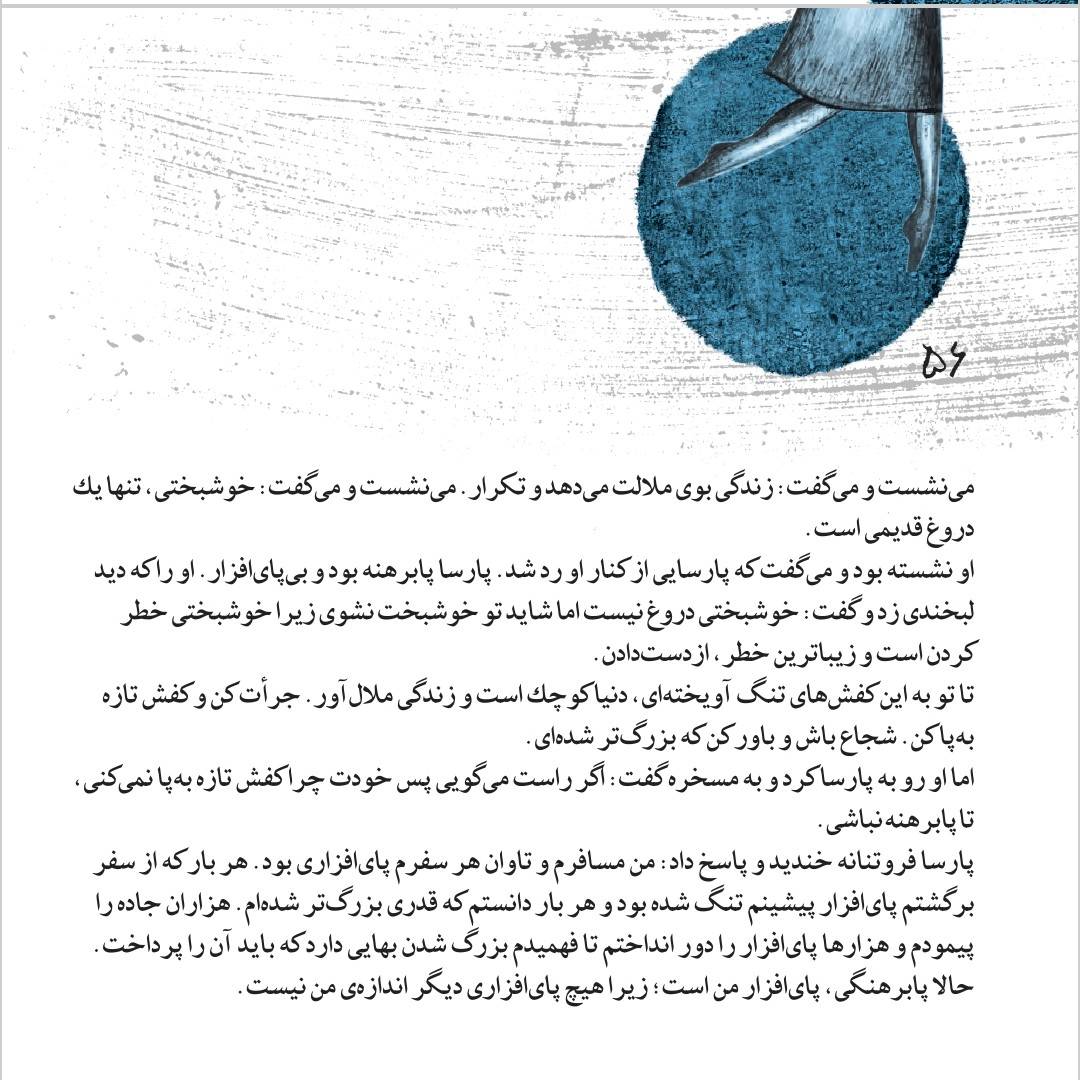 ۵۶
می‌نشست و می‌گفت: زندگی بوی ملالت می‌دهد و تکرار. می‌نشست و می‌گفت: خوشبختی، تنها یك
دروغ قدیمی است.
او نشسته بود و می‌گفت که پارسایی از کنار او رد شد. پارسا پابرهنه بود و بی‌پای‌افزار. او را که دید
لبخندی زد و گفت: خوشبختی دروغ نیست اما شاید تو خوشبخت نشوی زیرا خوشبختی خطر
کردن است و زیباترین خطر، ازدست‌دادن.
تا تو به این کفش‌های تنگ آویخته‌ای، دنیا کوچك است و زندگی ملال‌آور. جرأت کن و کفش تازه
به‌پا کن. شجاع باش و باور کن که بزرگ‌تر شده‌ای.
اما او رو به پارسا کرد و به مسخره گفت: اگر راست می‌گویی پس خودت چرا کفش تازه به‌پا نمی‌کنی،
تا پابرهنه نباشی.
پارسا فروتنانه خندید و پاسخ داد: من مسافرم و تاوان هر سفرم پای‌افزاری بود. هر بار که از سفر
برگشتم پای‌افزار پیشینم تنگ شده بود و هر بار دانستم که قدری بزرگ‌تر شده‌ام. هزاران جاده را
پیمودم و هزارها پای‌افزار را دور انداختم تا فهمیدم بزرگ شدن بهایی دارد که باید آن را پرداخت.
حالا پابرهنگی، پای‌افزار من است؛ زیرا هیچ پای‌افزاری دیگر اندازه‌ی من نیست.